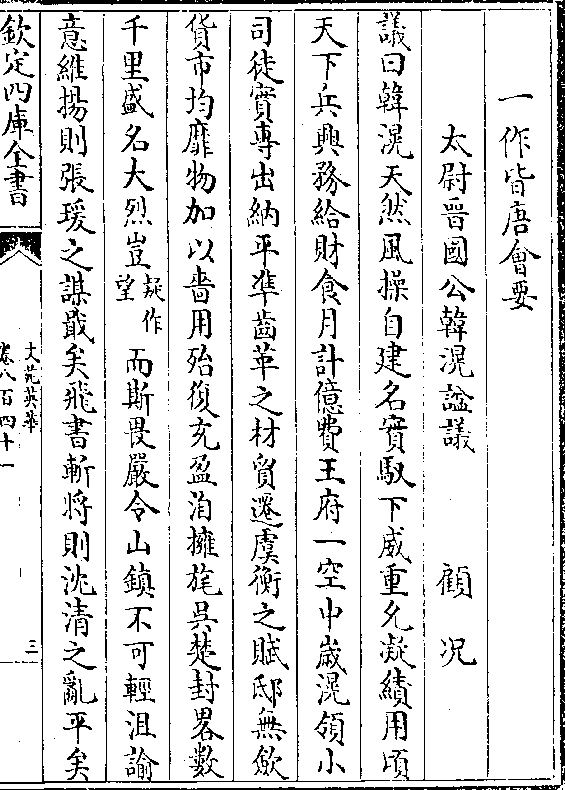 一作皆唐會要
太尉晋國公韓滉諡議　顧況
議曰韓滉天然風操自建名實馭下威重允凝績用頃
天下兵興務給財食月計億費王府一空中嵗滉領小
司徒實專出納平準齒革之材貿遷虞衡之賦邸無斂
貨市均靡物加以嗇用殆復充盈洎擁旄吳楚封畧數
千里盛名大烈豈疑作望而斯畏嚴令山鎮不可輕沮諭
意維揚則張瑗之謀戢矣飛書斬將則沈清之亂平矣
欽定四庫全書
文苑英華
卷八百四十一
三